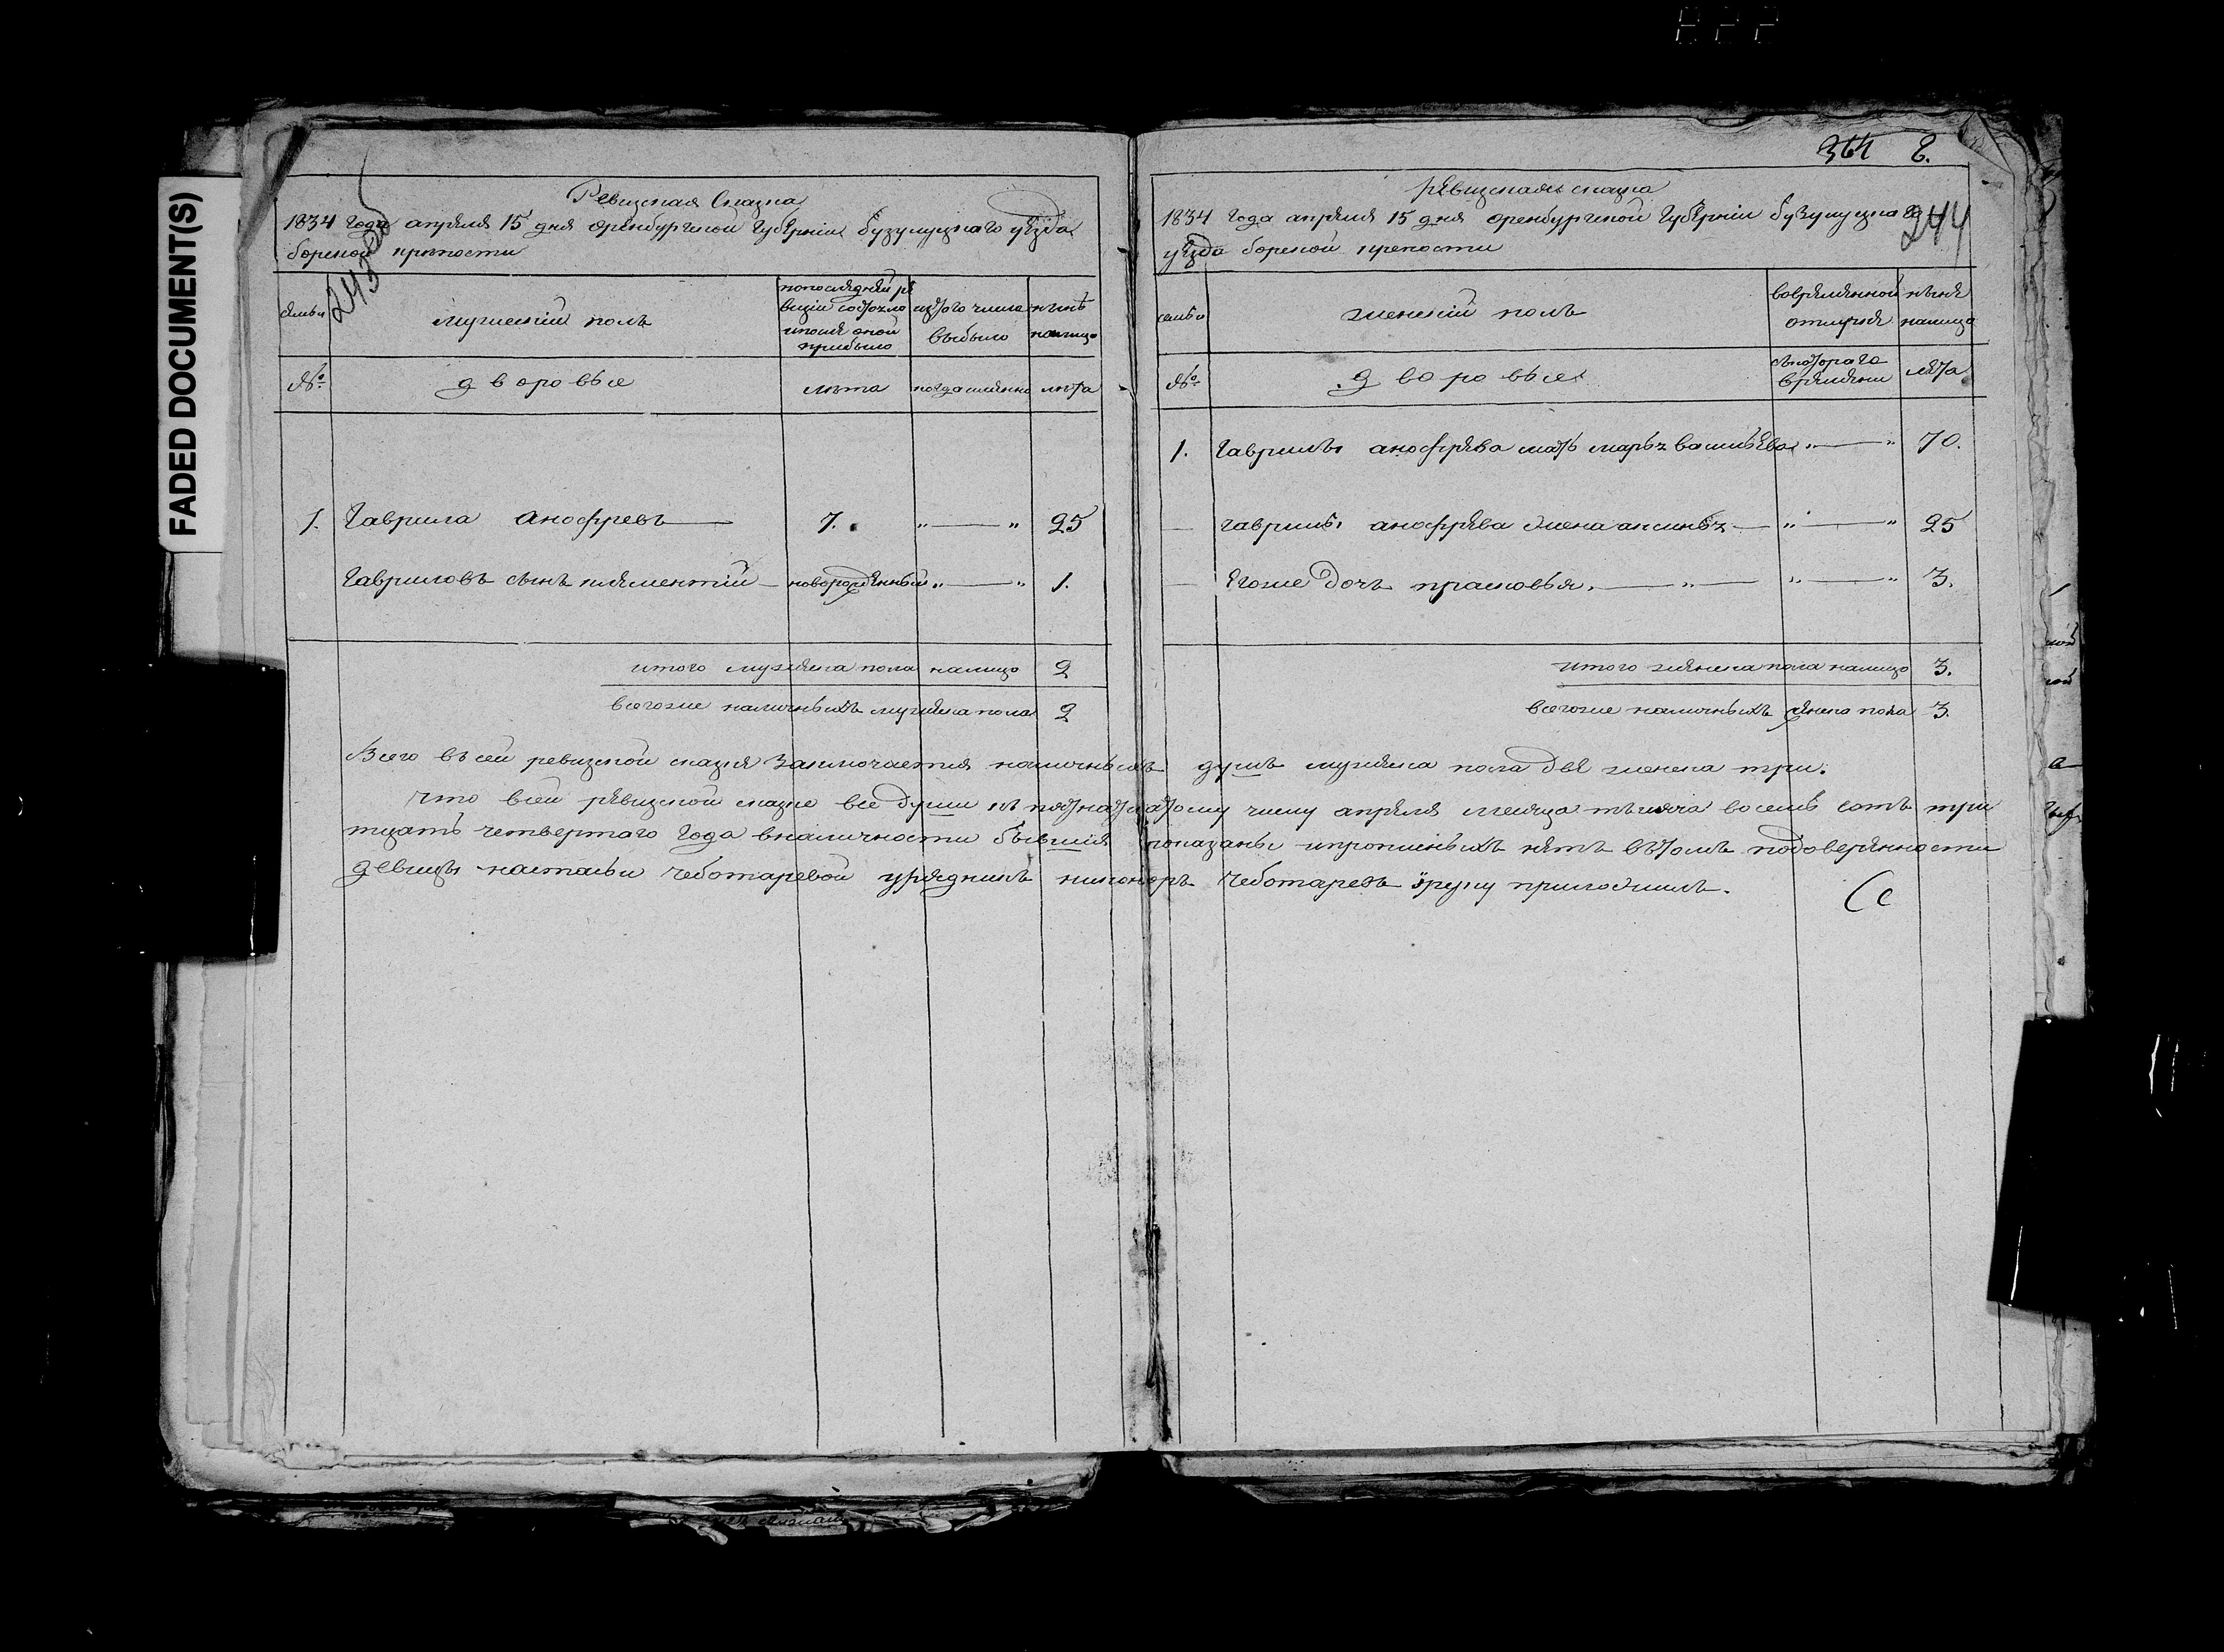 FADED DOCUMENT(S)
243
Ревизская Сказка
1834 года апреля 15 дня оренбургской Губернии бузулуцкаго уезда
борской крепости
семьи
мужеский полъ
попоследней ре
визии состояло
ипосле оной
прибыло
изтого числа
выбыло
ныне
налицо
№
дворовые
лета
когда именно
лета
1. Гаврила Анофревъ 7. „ — „ 25
Гавриловъ сынъ клементий новорожденный „ — „ 1.
итого мужеска пола налицо 2
всегоже наличныхъ мужеска пола 2
364
244
ревизская сказка
1834 года апреля 15 дня оренбургской Губернии бузулуцкаго
уезда борской крепости
семьи
женский полъ
вовременной
отлучке
ныне
налицо
№
дворовые
скотораго
времени
лета
1. Гаврилы анофрева мать марья васильева „ — „ 70.
— гаврилы анофрева жена аксинья — „ — „ 25
— Егоже дочь прасковья „ — „ — „ 3.
итого женска пола налицо 3.
всегоже наличныхъ женска пола 3.
Всего всей ревизской сказке заключается наличныхъ душъ мужеска пола две женска три.
что всей ревизской сказке все души къ пятнатцатому числу апреля месяца тысяча восемь сотъ три
тцать четвертаго года вналичности бывшия показаны ипрописныхъ нетъ вътомъ подоверенности
девицы настасьи Чеботаревой урядникъ никоноръ Чеботаревъ руку приложилъ.